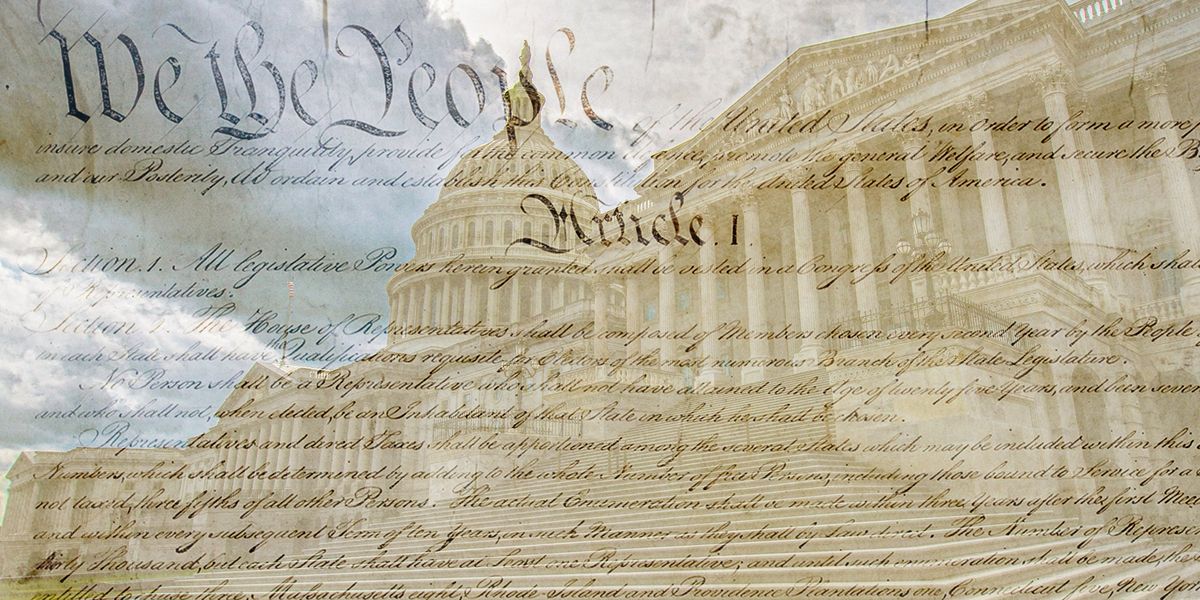 We the People
of the United States, in Order to form a more
insure domestic Tranquility, provide for the common defence, promote the general Welfare, and secure the B
and our Posterity, do ordain and establish this Constitution for the United States of America.
Article. I.
Section. 1. All legislative Powers herein granted shall be vested in a Congress of the United States, which shall
of Representatives.
Section. 2. The House of Representatives shall be composed of Members chosen every second Year by the People
in each State shall have the Qualifications requisite for Electors of the most numerous Branch of the State Legislature.
No Person shall be a Representative who shall not have attained to the Age of twenty five Years, and been seven
and who shall not, when elected, be an Inhabitant of that State in which he shall be chosen.
Representatives and direct Taxes shall be apportioned among the several States which may be included within this
Numbers, which shall be determined by adding to the whole Number of free Persons, including those bound to Service for a
not taxed, three fifths of all other Persons. The actual Enumeration shall be made within three Years after the first Mee
and within every subsequent Term of ten Years, in such Manner as they shall by Law direct. The Number of Represe
thirty Thousand, but each State shall have at Least one Representative; and until such enumeration shall be made, the
entitled to chuse three, Massachusetts eight, Rhode-Island and Providence Plantations one, Connecticut five, New York